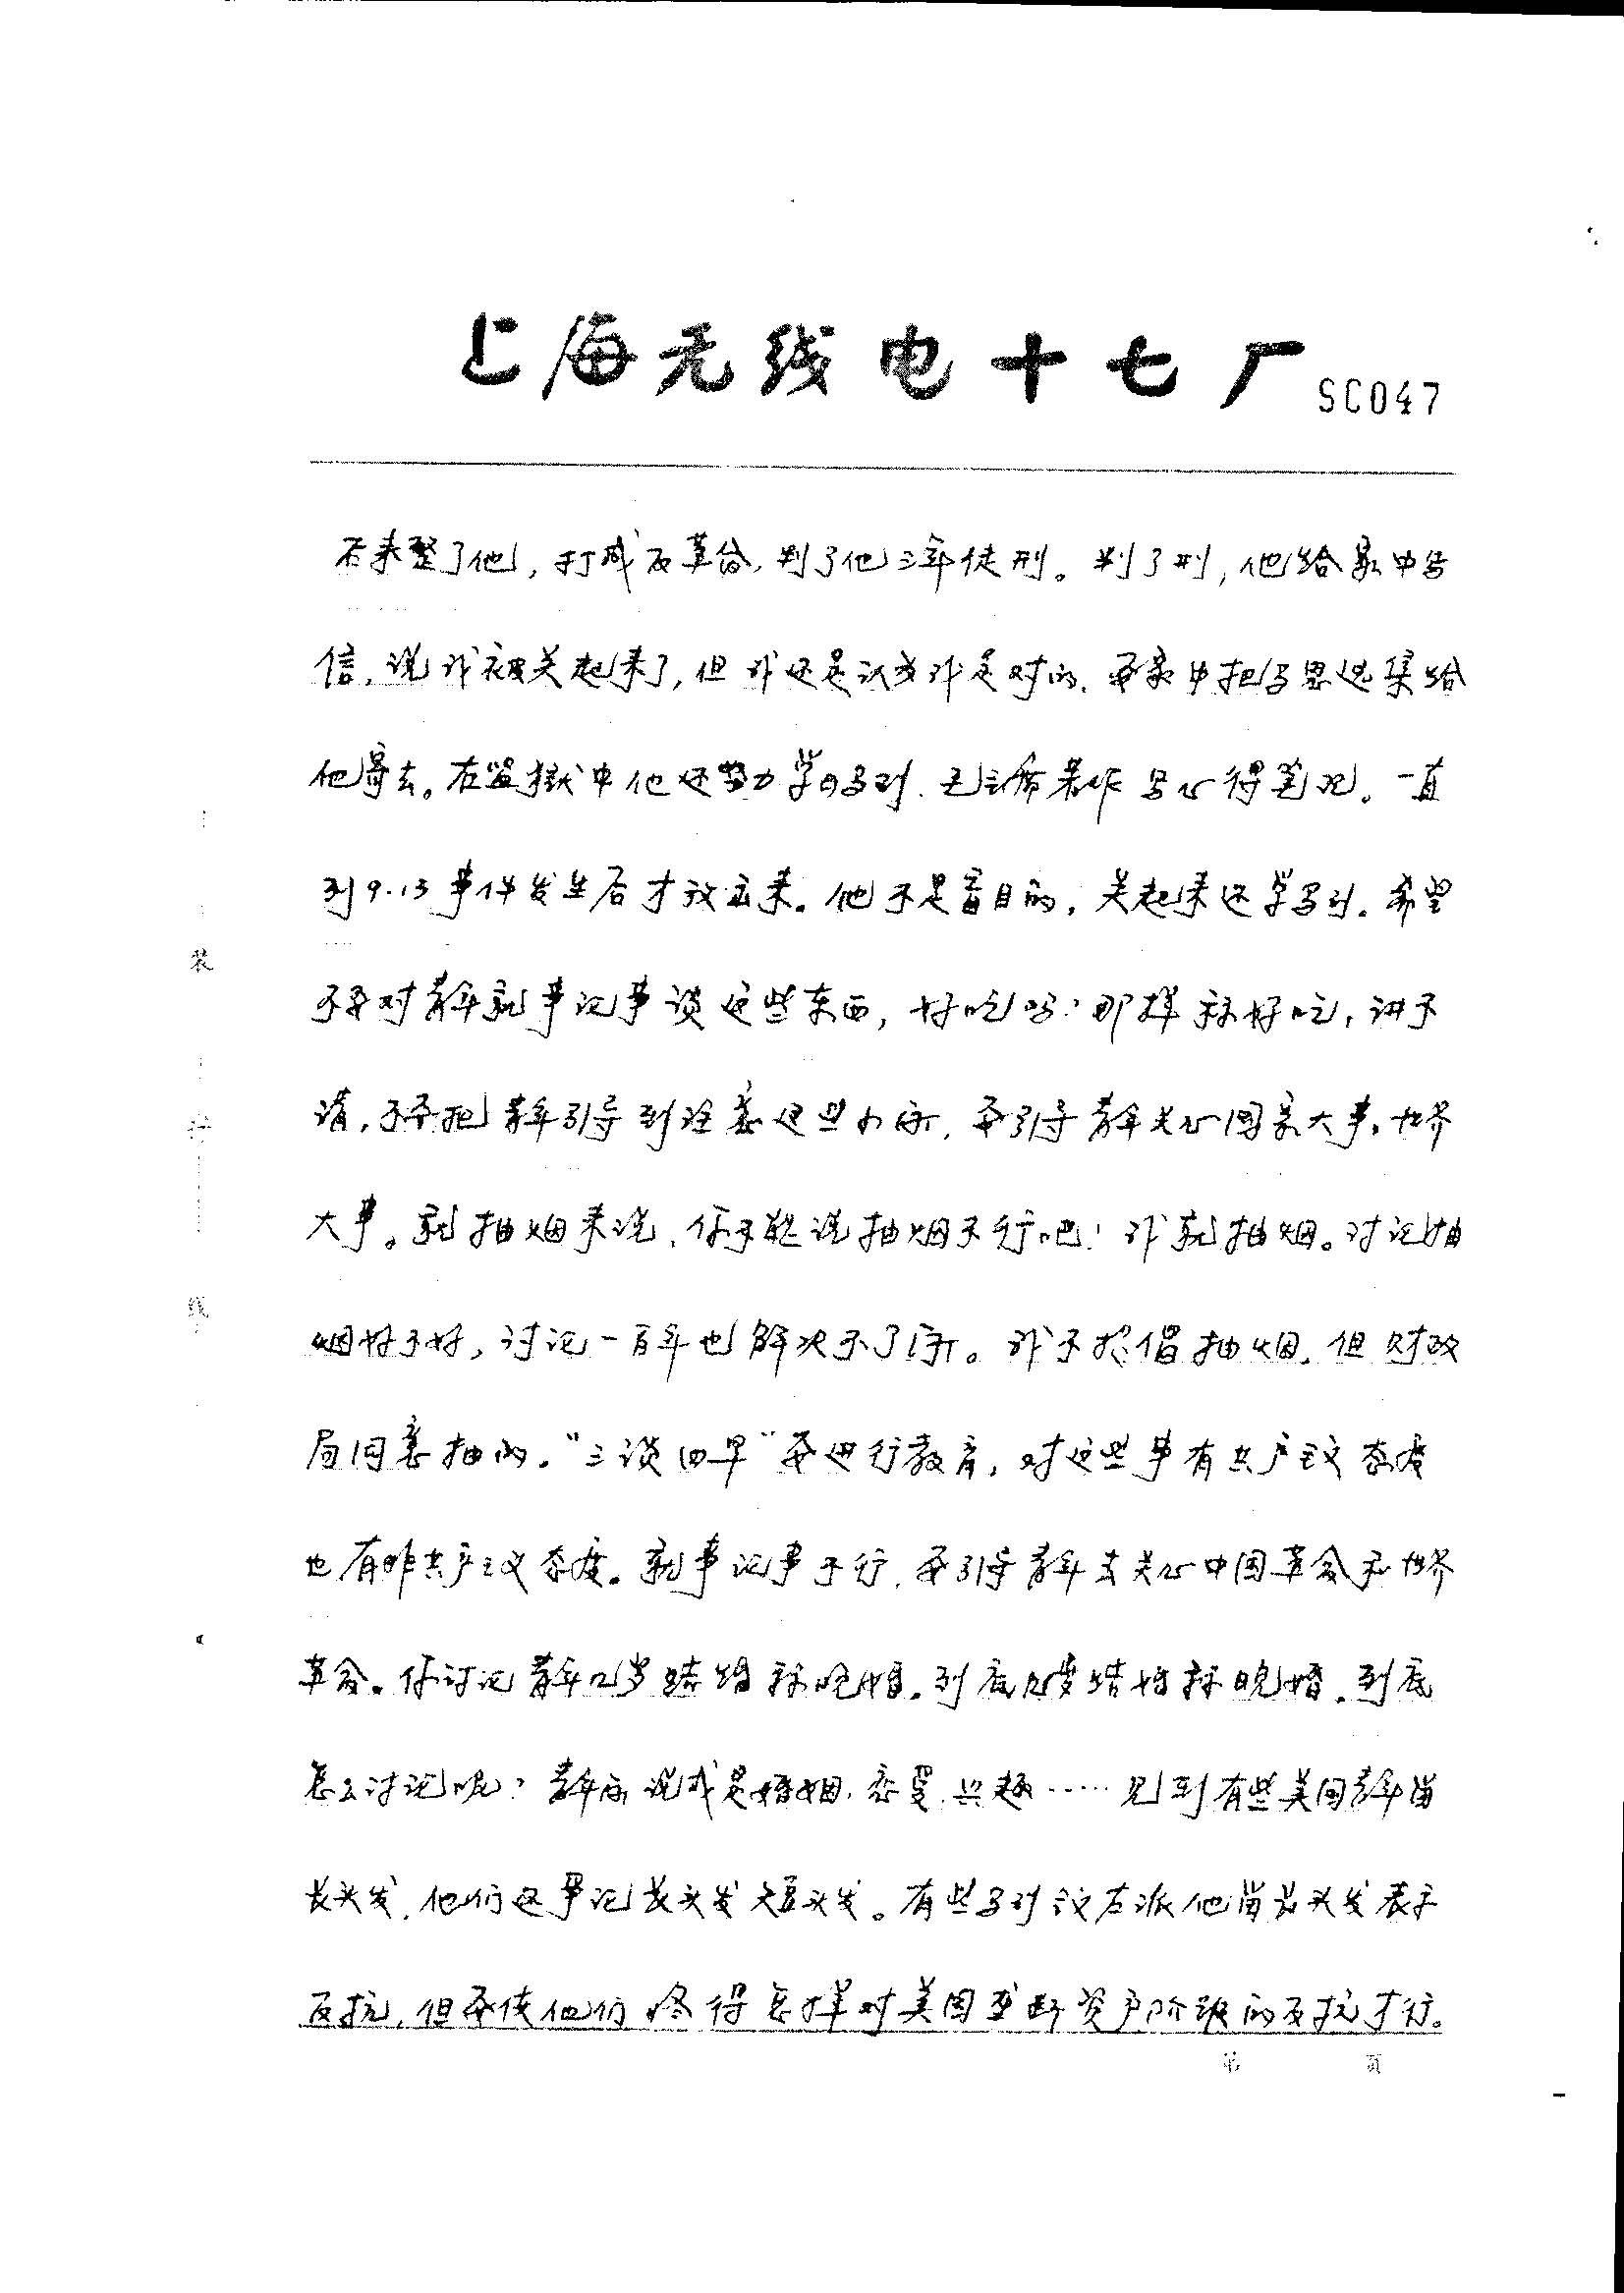 上海无线电十七厂 SC047
后来整了他，打成反革命，判了他三年徒刑。判了刑，他给家中写
信，说我被关起来了，但我还是认为我是对的，要家中把马恩选集给
他寄去。在监狱中他还努力学习马列、毛主席著作写心得笔记。一直
到9.13事件发生后才放出来。他不是盲目的，关起来还学马列。希望
不要对青年就事论事谈这些东西，好吃吗？那样称好吃，讲不
清，不要把青年引导到注意这些小所，要引导青年关心国家大事，世界
大事。就抽烟来说，你不能说抽烟不行吧！我就抽烟。讨论抽
烟好不好，讨论一百年也解决不了所。我不提倡抽烟，但财政
局同意抽的。“三谈四早”要进行教育，对这些事有共产主义态度
也有非共产主义态度。就事论事不行，要引导青年去关心中国革命和世界
革命。你讨论青年几岁结婚称晚婚。到底几岁结婚称晚婚，到底
怎么讨论呢？青年所说成是婚姻、恋爱、兴趣……见到有些美国青年留
长头发，他们还争论长头发短头发。有些马列主义左派他留长头发表示
反抗，但要使他们懂得怎样对美国垄断资产阶级的反抗才行。
装
订
线
第 页